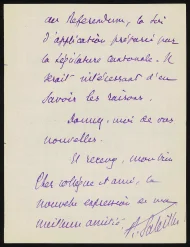 au Referendum, la loi
d'application préparée par
la législature cantonale. Il
serait intéressant d'en
savoir les raisons.
Donnez-moi de vos
nouvelles.
Et recevez, mon bien
cher collègue et ami, la
nouvelle expression de ma
meilleure amitié.
R. Saleilles